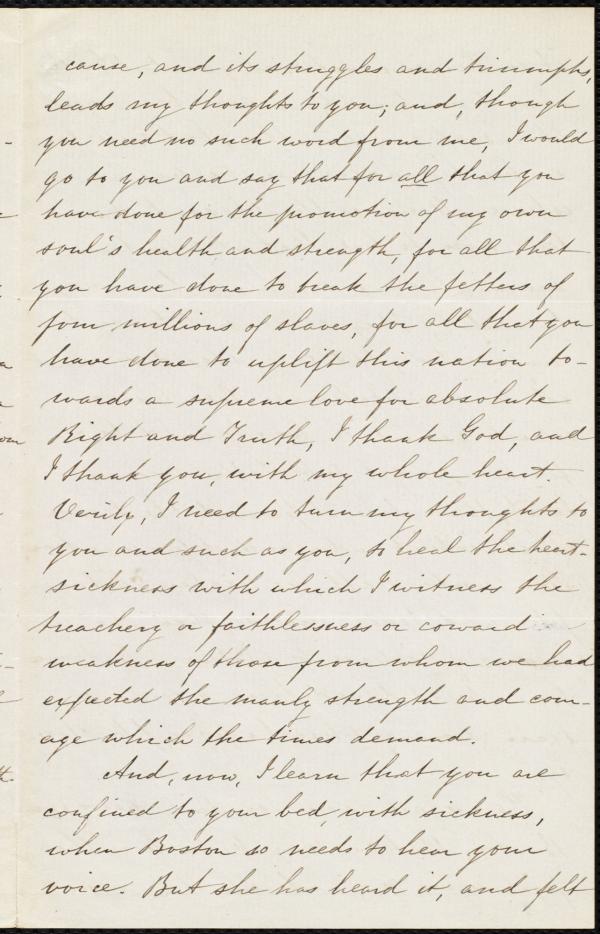 cause, and its struggles and triumphs,
leads my thoughts to you; and, though
you need no such word from me, I would
go to you and say that for all that you
have done for the promotion of my own
soul's health and strength, for all that
you have done to break the fetters of
four millions of slaves, for all that you
have done to uplift this nation to-
wards a supreme love for absolute
Right and Truth, I thank God, and
I thank you, with my whole heart.
Verily, I need to turn my thoughts to
you and such as you, to heal the heart-
sickness with which I witness the
treachery or faithlessness or coward
weakness of those from whom we had
expected the manly strength and cour-
age which the times demand.
And, now, I learn that you are
confined to your bed, with sickness,
when Boston so needs to hear your
voice. But she has heard it, and felt